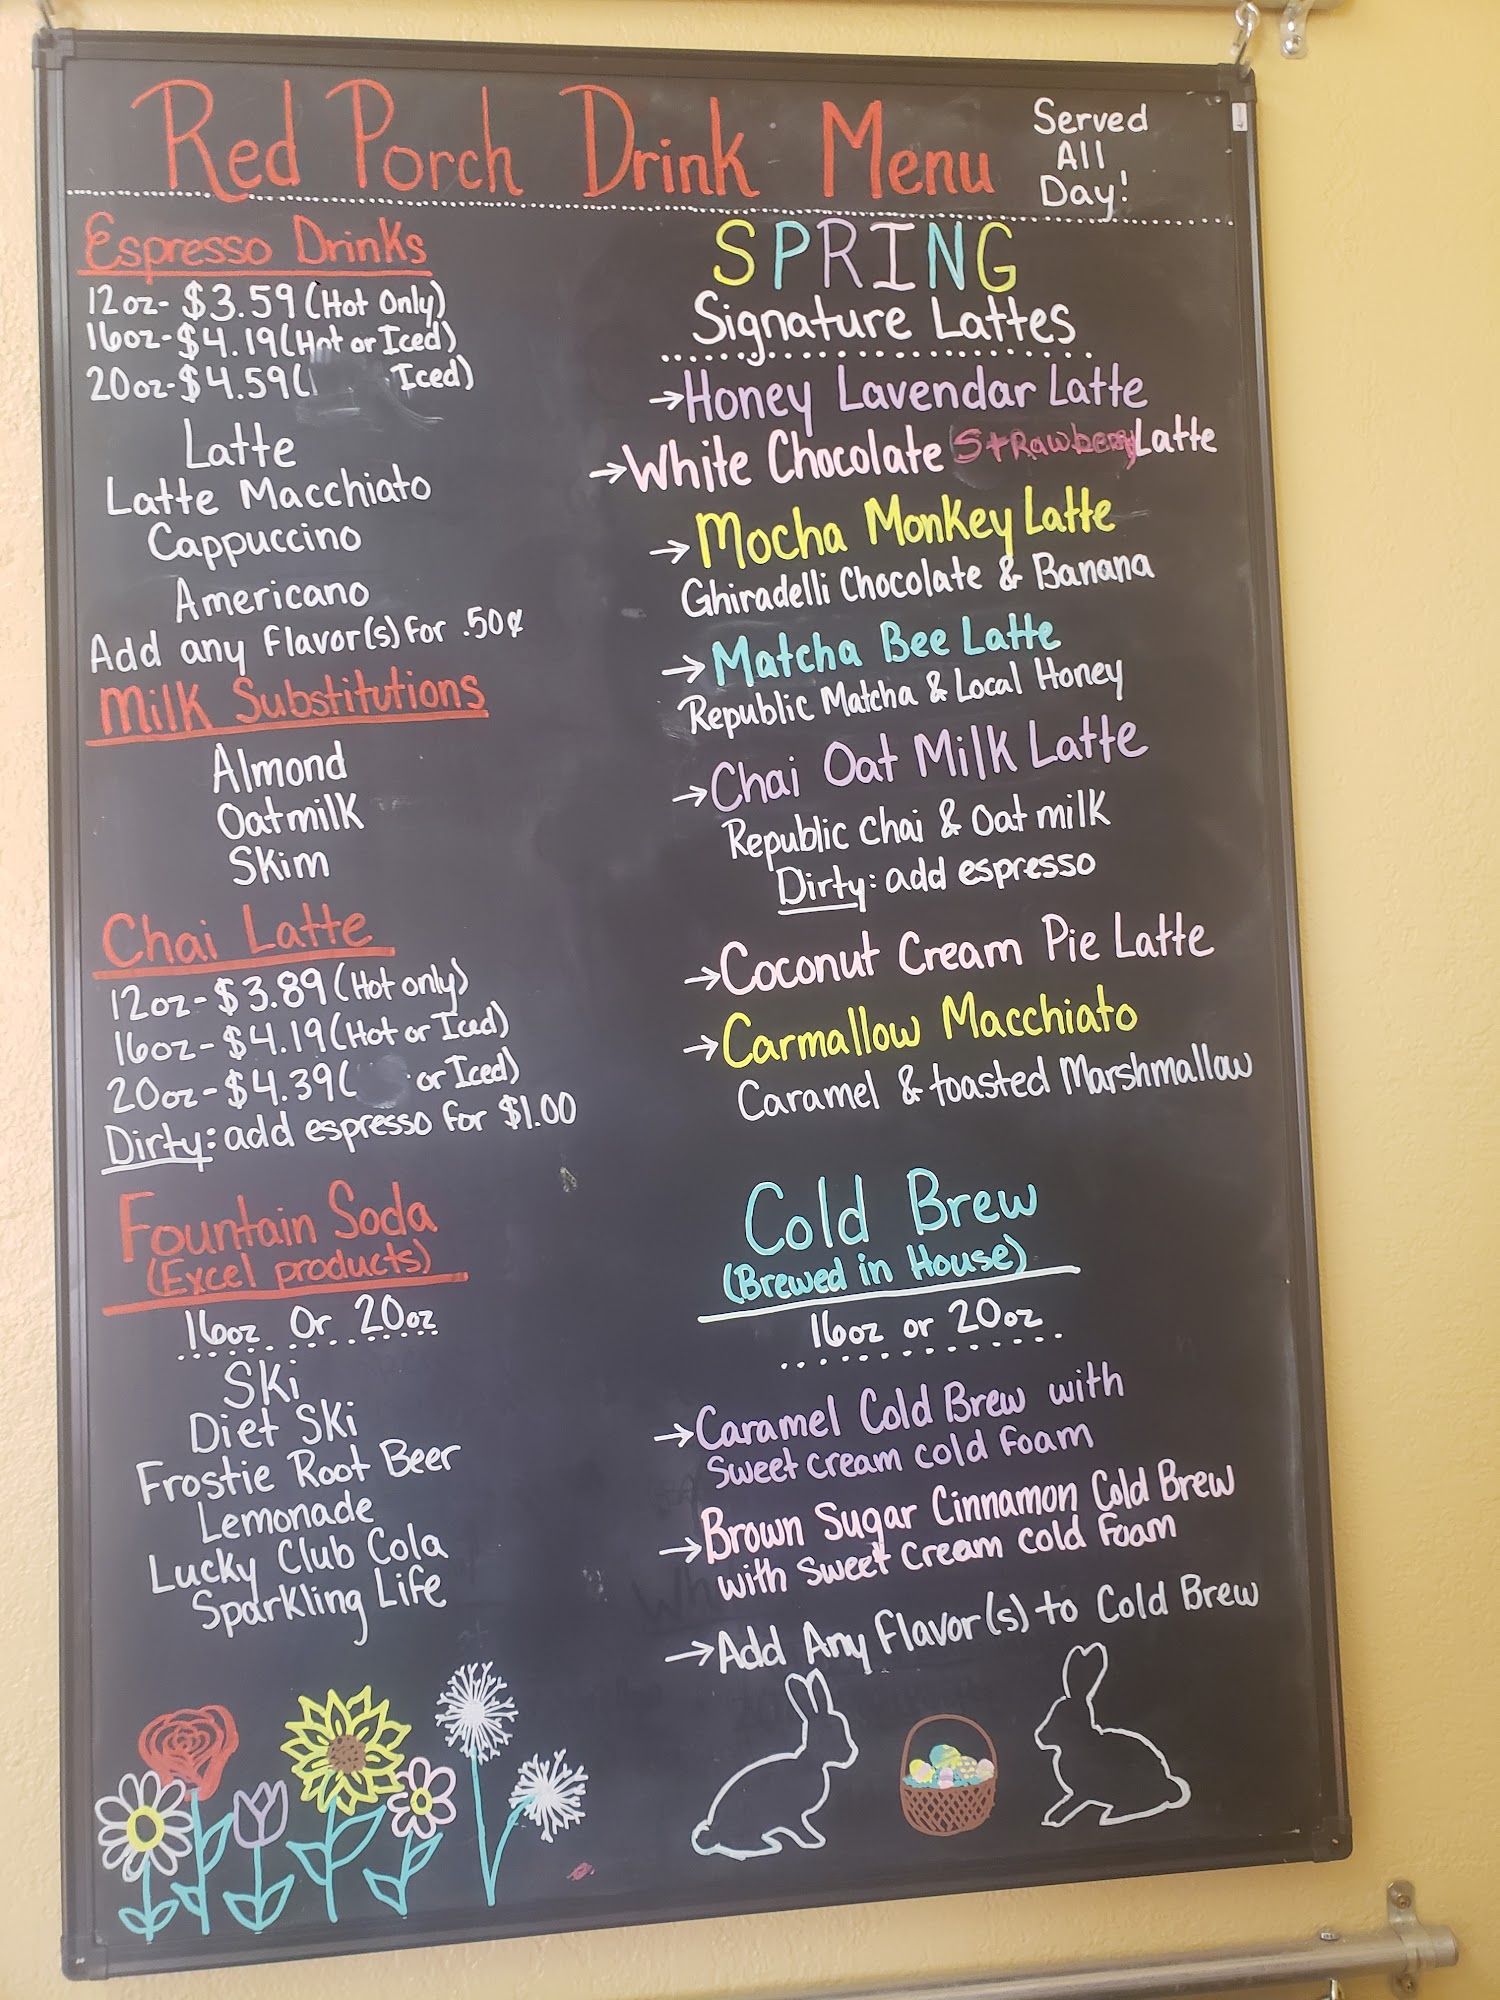 Red Porch Drink Menu
Served
All
Day!
Espresso Drinks
12oz- $3.59 (Hot Only)
16oz- $4.19 (Hot or Iced)
20oz- $4.59 ( Iced)
Latte
Latte Macchiato
Cappuccino
Americano
Add any Flavor(s) For .50¢
Milk Substitutions
Almond
Oatmilk
Skim
Chai Latte
12oz- $3.89 (Hot only)
16oz- $4.19 (Hot or Iced)
20oz- $4.39 ( or Iced)
Dirty: add espresso for $1.00
Fountain Soda
(Excel products)
16oz Or 20oz
Ski
Diet Ski
Frostie Root Beer
Lemonade
Lucky Club Cola
Sparkling Life
SPRING
Signature Lattes
→Honey Lavendar Latte
→White Chocolate Strawberry Latte
→Mocha Monkey Latte
Ghiradelli Chocolate & Banana
→Matcha Bee Latte
Republic Matcha & Local Honey
→Chai Oat Milk Latte
Republic Chai & Oat milk
Dirty: add espresso
→Coconut Cream Pie Latte
→Carmallow Macchiato
Caramel & toasted Marshmallow
Cold Brew
(Brewed in House)
16oz or 20oz
→Caramel Cold Brew with
Sweet cream cold Foam
→Brown Sugar Cinnamon Cold Brew
with Sweet Cream cold Foam
→Add Any Flavor(s) to Cold Brew